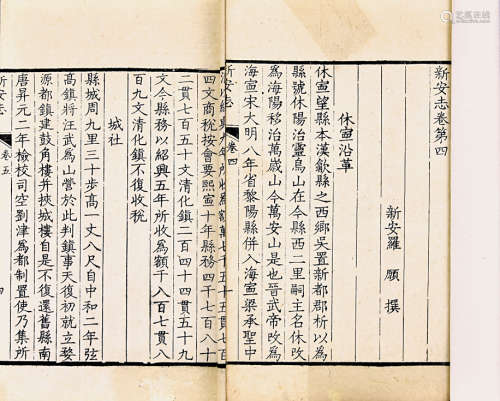 新安志卷第四
新安羅 願 撰
休寕沿革
休寕望縣本漢歙縣之西鄉吴置新都郡析以為
縣號休陽治靈烏山在今縣西二里嗣主名休改
為海陽移治山今萬安山是也晉武帝改為
海寕宋大明八年省黎陽縣併入海寕梁承聖中
新安志 卷四
九年所收為額萬七千五十五貫七百
四文商稅按會要熙寕十年縣務四千七百八十
二貫七百五十文清化鎮二百四十四貫五十九
文今縣務以紹興五年所收為額千八百七貫八
百九文清化鎮不復收稅
城社
縣城周九里三十步高一丈八尺自中和二年弦
高鎮將汪武為山營於此判鎮事天復初就立婺
源都鎮建鼓角樓并挾城樓自是不復還舊縣南
唐昇元二年檢校司空劉津為都制置使乃集所
新安志 卷五 四